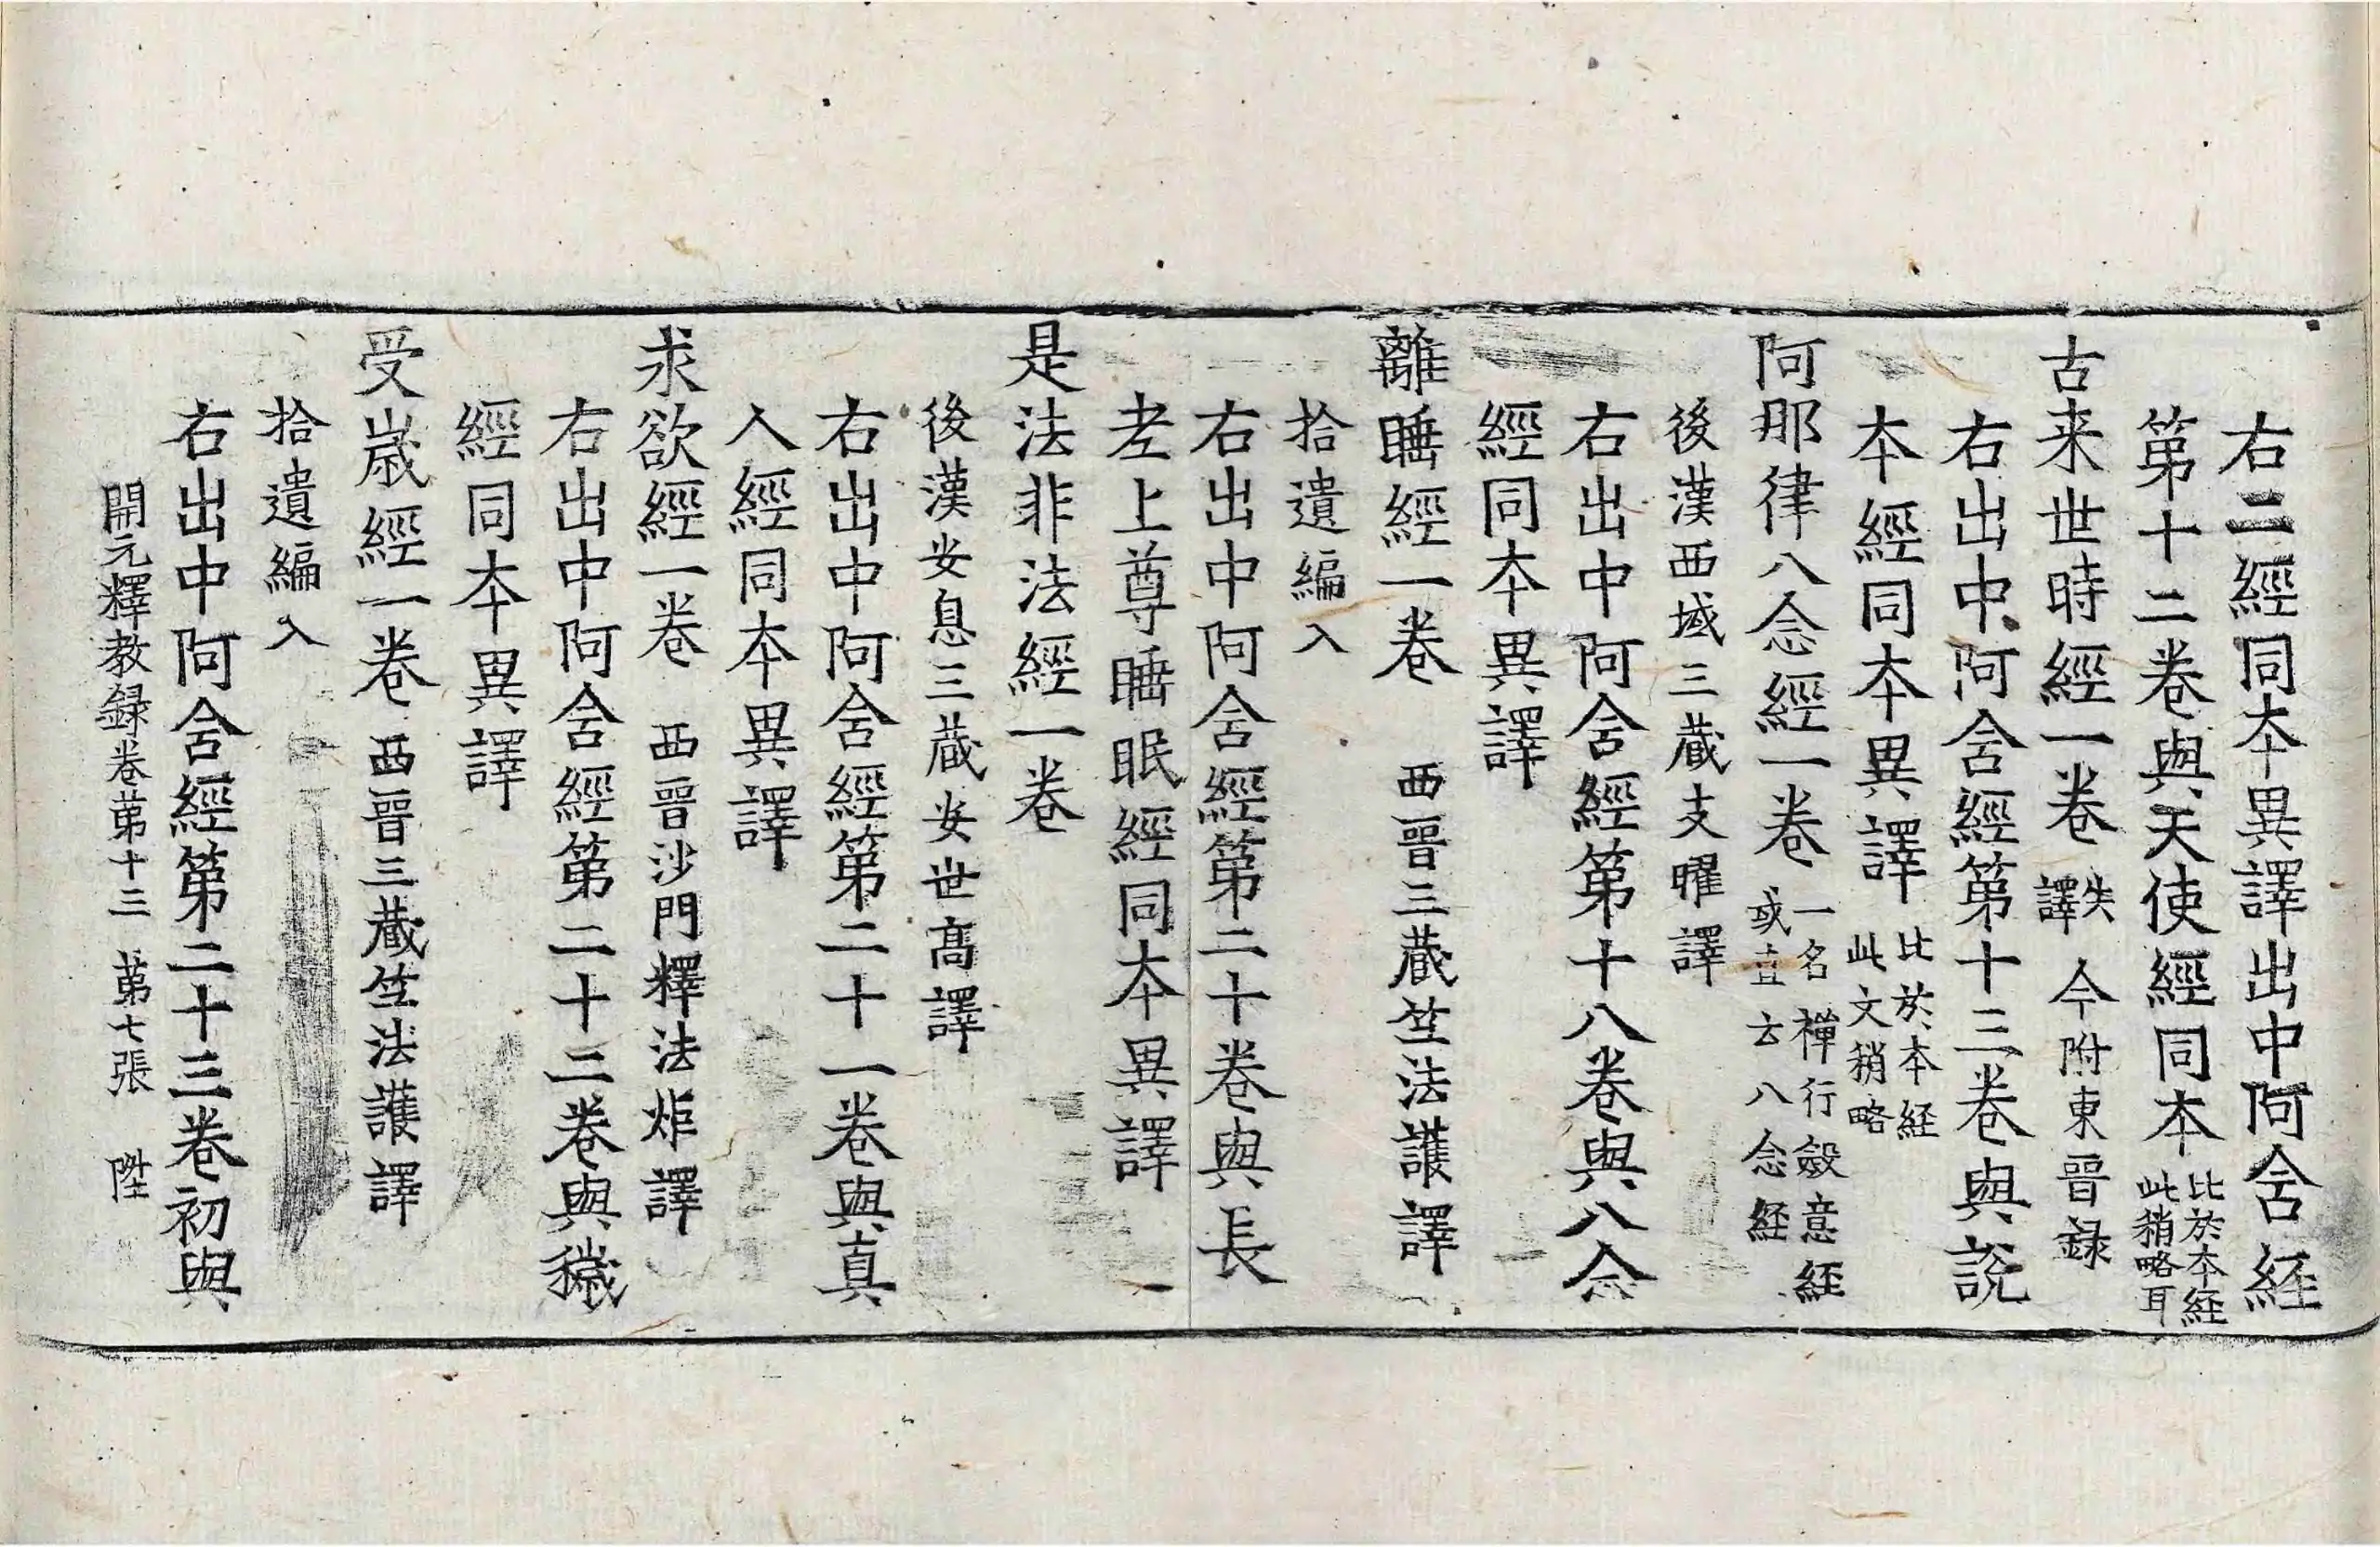 右二經同本異譯出中阿含經
第十二卷與天使經同本比於本経此稍略耳
古来世時經一卷失譯今附東晉録
右出中阿含經第十三卷與說
本經同本異譯比於本経此文稍略
阿那律八念經一卷一名禪行斂意経或直云八念経
後漢西域三藏支曜譯
右出中阿含經第十八卷與八念
經同本異譯
離睡經一卷 西晉三藏竺法護譯
拾遺編入
右出中阿含經第二十卷與長
老上尊睡眠經同本異譯
是法非法經一卷
後漢安息三藏安世髙譯
右出中阿含經第二十一卷與真
人經同本異譯
求欲經一卷 西晉沙門釋法炬譯
右出中阿含經第二十二卷與穢
經同本異譯
受歲經一卷 西晉三藏竺法護譯
拾遺編入
右出中阿含經第二十三卷初與
開元釋教録卷苐十三 苐七張 陞